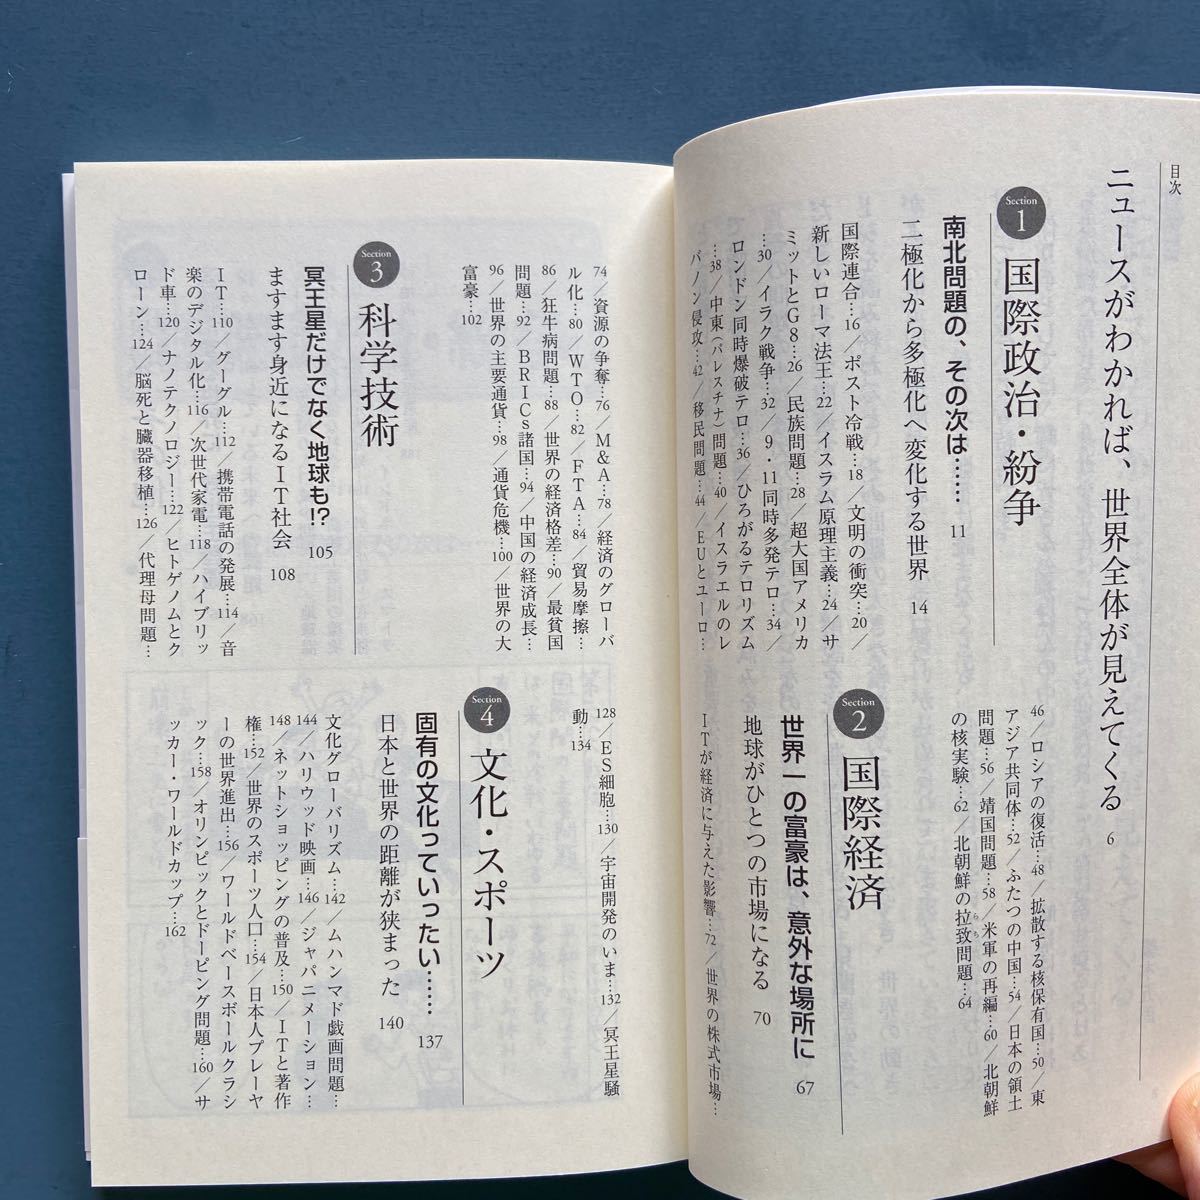 目次
ニュースがわかれば、世界全体が見えてくる 6
Section 1 国際政治・紛争
南北問題の、その次は…… 11
二極化から多極化へ変化する世界 14
国際連合…16／ポスト冷戦…18／文明の衝突…20／
新しいローマ法王…22／イスラム原理主義…24／サ
ミットとG8…26／民族問題…28／超大国アメリカ
…30／イラク戦争…32／9・11同時多発テロ…34／
ロンドン同時爆破テロ…36／ひろがるテロリズム
…38／中東（パレスチナ）問題…40／イスラエルのレ
バノン侵攻…42／移民問題…44／EUとユーロ…
46／ロシアの復活…48／拡散する核保有国…50／東
アジア共同体…52／ふたつの中国…54／日本の領土
問題…56／靖国問題…58／米軍の再編…60／北朝鮮
の核実験…62／北朝鮮の拉致問題…64
らち
Section 2 国際経済
世界一の富豪は、意外な場所に 67
地球がひとつの市場になる 70
ITが経済に与えた影響…72／世界の株式市場…
74／資源の争奪…76／M&A…78／経済のグローバ
ル化…80／WTO…82／FTA…84／貿易摩擦…
86／狂牛病問題…88／世界の経済格差…90／最貧国
問題…92／BRICs諸国…94／中国の経済成長…
96／世界の主要通貨…98／通貨危機…100／世界の大
富豪…102
Section 3 科学技術
冥王星だけでなく地球も!? 105
ますます身近になるIT社会 108
IT…110／グーグル…112／携帯電話の発展…114／音
楽のデジタル化…116／次世代家電…118／ハイブリッ
ド車…120／ナノテクノロジー…122／ヒトゲノムとク
ローン…124／脳死と臓器移植…126／代理母問題…
128／ES細胞…130／宇宙開発のいま…132／冥王星騒
動…134
Section 4 文化・スポーツ
固有の文化っていったい…… 137
日本と世界の距離が狭まった 140
文化グローバリズム…142／ムハンマド戯画問題…
144／ハリウッド映画…146／ジャパニメーション…
148／ネットショッピングの普及…150／ITと著作
権…152／世界のスポーツ人口…154／日本人プレーヤ
ーの世界進出…156／ワールドベースボールクラシ
ック…158／オリンピックとドーピング問題…160／サ
ッカー・ワールドカップ…162